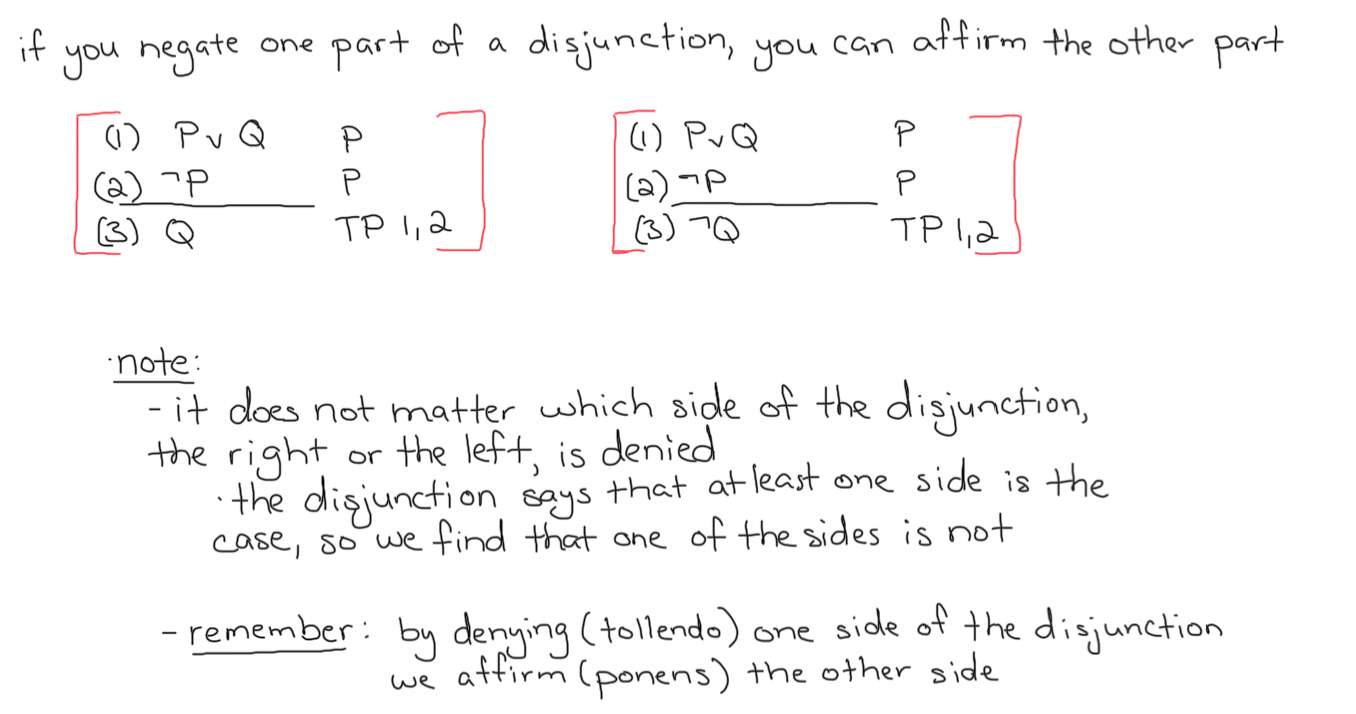 if you negate one part of a disjunction, you can affirm the other part
(1) P ∨ Q P
(2) ¬P P
(3) Q TP 1,2
(1) P ∨ Q P
(2) ¬P P
(3) ¬Q TP 1,2
·note:
- it does not matter which side of the disjunction,
the right or the left, is denied
· the disjunction says that at least one side is the
case, so we find that one of the sides is not
- remember: by denying (tollendo) one side of the disjunction
we affirm (ponens) the other side